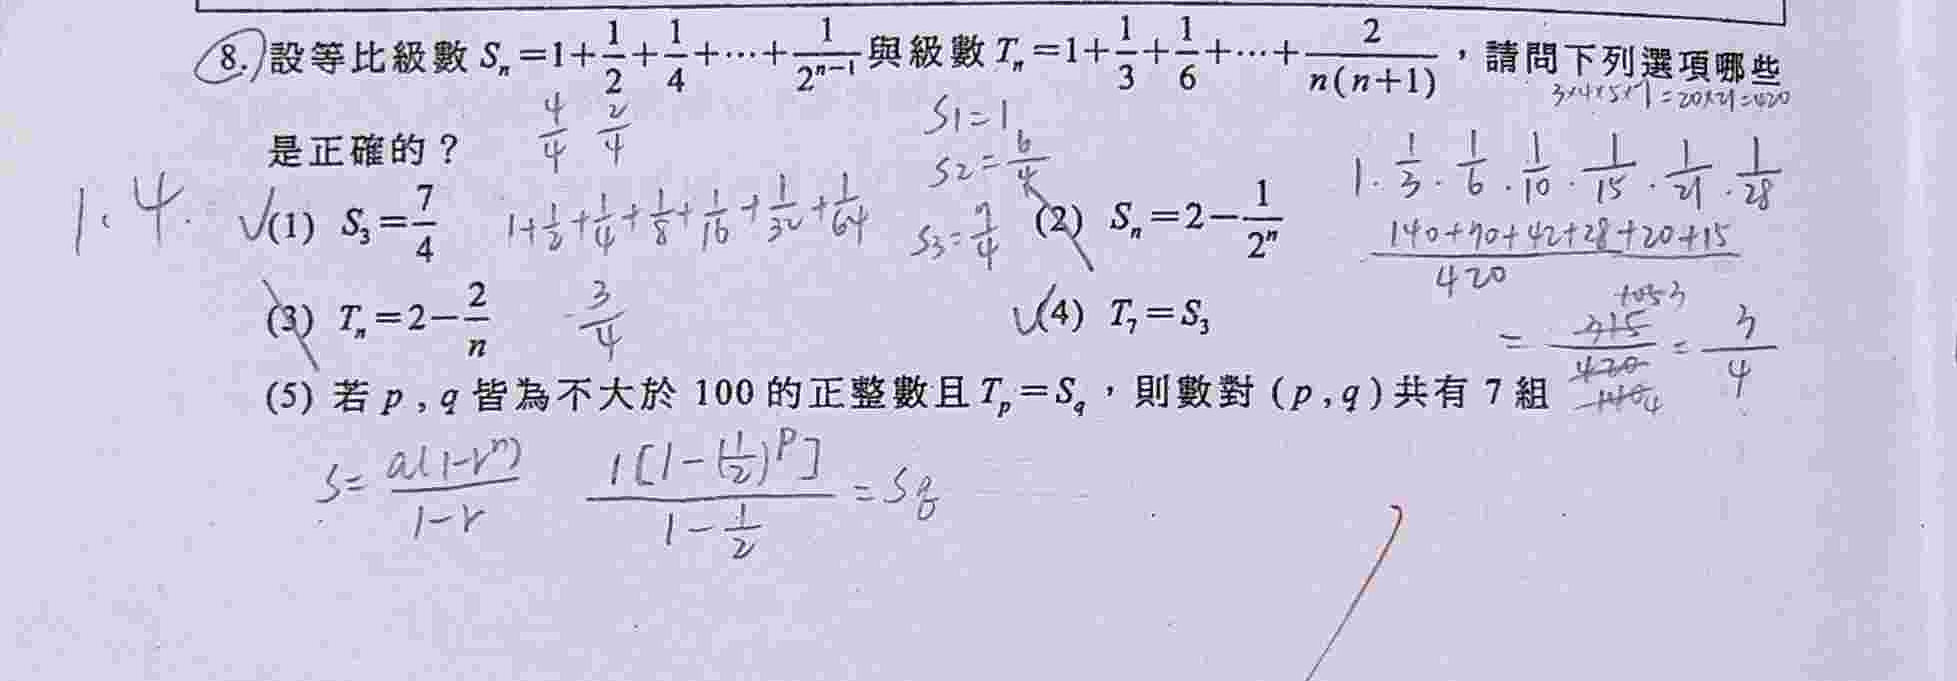 8. 設等比級數 Sₙ=1+1/2+1/4+⋯+1/2ⁿ⁻¹ 與級數 Tₙ=1+1/3+1/6+⋯+2/n(n+1)，請問下列選項哪些
3×4×5×7=20×21=420
是正確的？ 4/4 2/4 S1=1
S2=6/4 1. 1/3. 1/6. 1/10. 1/15. 1/21. 1/28
1、4. ✓(1) S₃=7/4 1+1/2+1/4+1/8+1/16+1/32+1/64 S3=7/4 (2) Sₙ=2−1/2ⁿ 140+70+42+28+20+15/420
(3) Tₙ=2−2/n 3/4 ✓(4) T₇=S₃ = 315/420 = 3/4
(5) 若 p , q 皆為不大於 100 的正整數且 Tₚ=S_q，則數對 (p , q) 共有 7 組
S= a(1-rⁿ)/1-r 1[1-(1/2)ᴾ]/1-1/2 = Sq